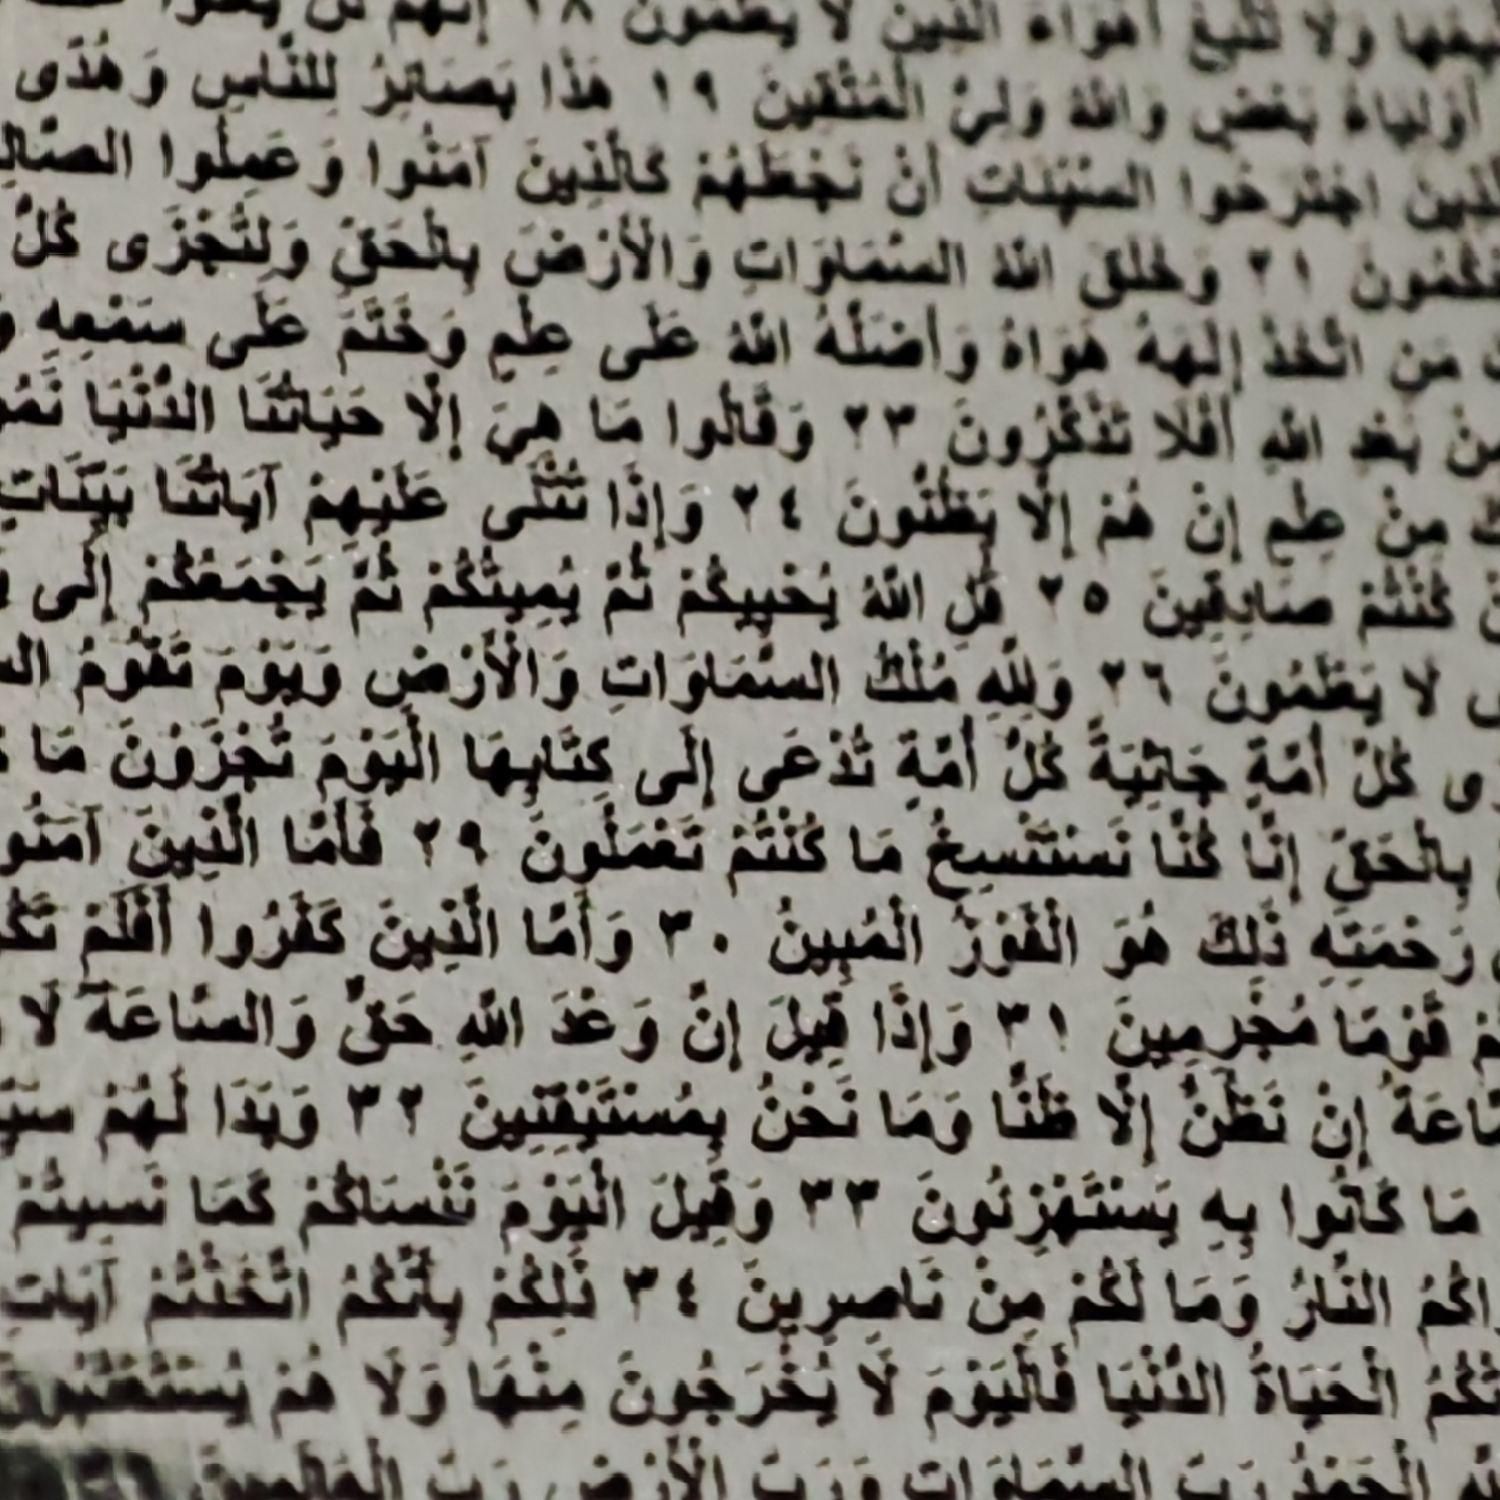 ولا تتبع أهواء الذين لا يعلمون ١٨ إنهم لن
أولياء بعض والله ولي المتقين ١٩ هَذَا بَصَائِرُ لِلنَّاسِ وَهُدًى
اجترحوا السيئات أَنْ نَجْعَلَهُمْ كَالَّذِينَ آمَنُوا وَعَمِلُوا
٢١ وَخَلَقَ اللهُ السَّمَاوَاتِ وَالْأَرْضَ بِالْحَقِّ وَلِتُجْزَى كُلُّ
مَنِ اتَّخَذَ إِلَهَهُ هَوَاهُ وَأَضَلَّهُ اللهُ عَلَى عِلْمٍ وَخَتَمَ عَلَى سَمْعِهِ
بَعْدِ اللهِ أَفَلَا تَذَكَّرُونَ ٢٣ وَقَالُوا مَا هِيَ إِلَّا حَيَاتُنَا الدُّنْيَا
مِنْ عِلْمٍ إِنْ هُمْ إِلَّا يَظُنُّونَ ٢٤ وَإِذَا تُتْلَى عَلَيْهِمْ آيَاتُنَا بَيِّنَاتٍ
كُنْتُمْ صَادِقِينَ ٢٥ قُلِ اللهُ يُحْيِيكُمْ ثُمَّ يُمِيتُكُمْ ثُمَّ يَجْمَعُكُمْ إِلَى
لَا يَعْلَمُونَ ٢٦ وَلِلَّهِ مُلْكُ السَّمَاوَاتِ وَالْأَرْضِ وَيَوْمَ تَقُومُ
كُلَّ أُمَّةٍ جَاثِيَةً كُلُّ أُمَّةٍ تُدْعَى إِلَى كِتَابِهَا الْيَوْمَ تُجْزَوْنَ مَا
بِالْحَقِّ إِنَّا كُنَّا نَسْتَنْسِخُ مَا كُنْتُمْ تَعْمَلُونَ ٢٩ فَأَمَّا الَّذِينَ
رَحْمَتِهِ ذَلِكَ هُوَ الْفَوْزُ الْمُبِينُ ٣٠ وَأَمَّا الَّذِينَ كَفَرُوا أَفَلَمْ
قَوْمًا مُجْرِمِينَ ٣١ وَإِذَا قِيلَ إِنَّ وَعْدَ اللهِ حَقٌّ وَالسَّاعَةُ لَا
إِنْ نَظُنُّ إِلَّا ظَنًّا وَمَا نَحْنُ بِمُسْتَيْقِنِينَ ٣٢ وَبَدَا لَهُمْ
مَا كَانُوا بِهِ يَسْتَهْزِئُونَ ٣٣ وَقِيلَ الْيَوْمَ نَنْسَاكُمْ كَمَا نَسِيتُمْ
النَّارُ وَمَا لَكُمْ مِنْ نَاصِرِينَ ٣٤ ذَلِكُمْ بِأَنَّكُمُ اتَّخَذْتُمْ آيَاتِ
الْحَيَاةُ الدُّنْيَا فَالْيَوْمَ لَا يُخْرَجُونَ مِنْهَا وَلَا هُمْ يُسْتَعْتَبُونَ
الْحَمْدُ رَبِّ السَّمَاوَاتِ وَرَبِّ الْأَرْضِ رَبِّ الْعَالَمِينَ